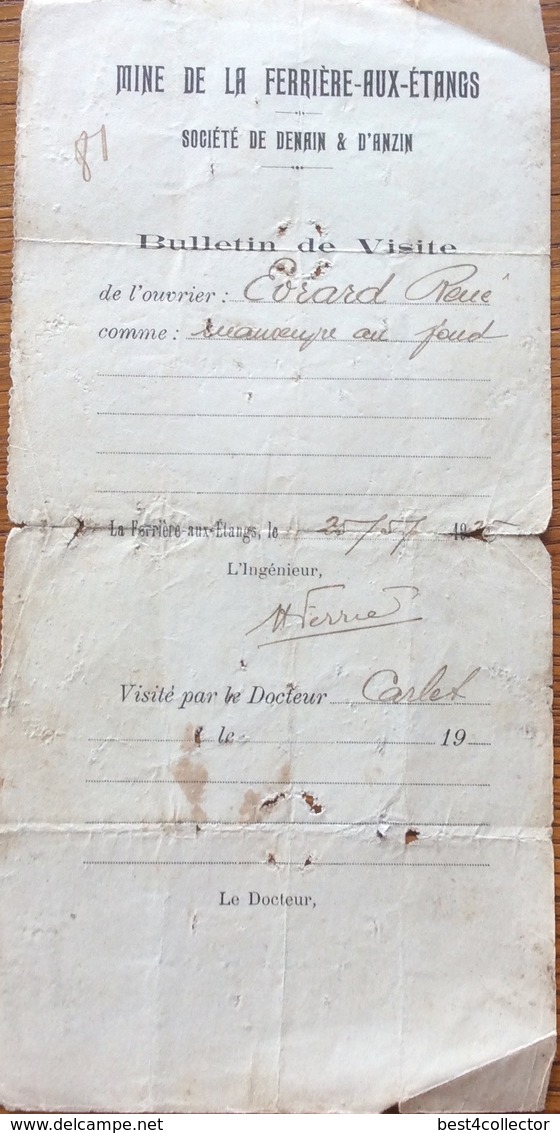 MINE DE LA FERRIÈRE-AUX-ÉTANGS
SOCIÉTÉ DE DENAIN & D'ANZIN
81
Bulletin de Visite
de l'ouvrier : Evrard René
comme : manœuvre au fond
La Ferrière-aux-Étangs, le 25/5/ 1925
L'Ingénieur,
H Ferrie
Visité par le Docteur Carlet
le 19
Le Docteur,
delcampe.net
best4collector